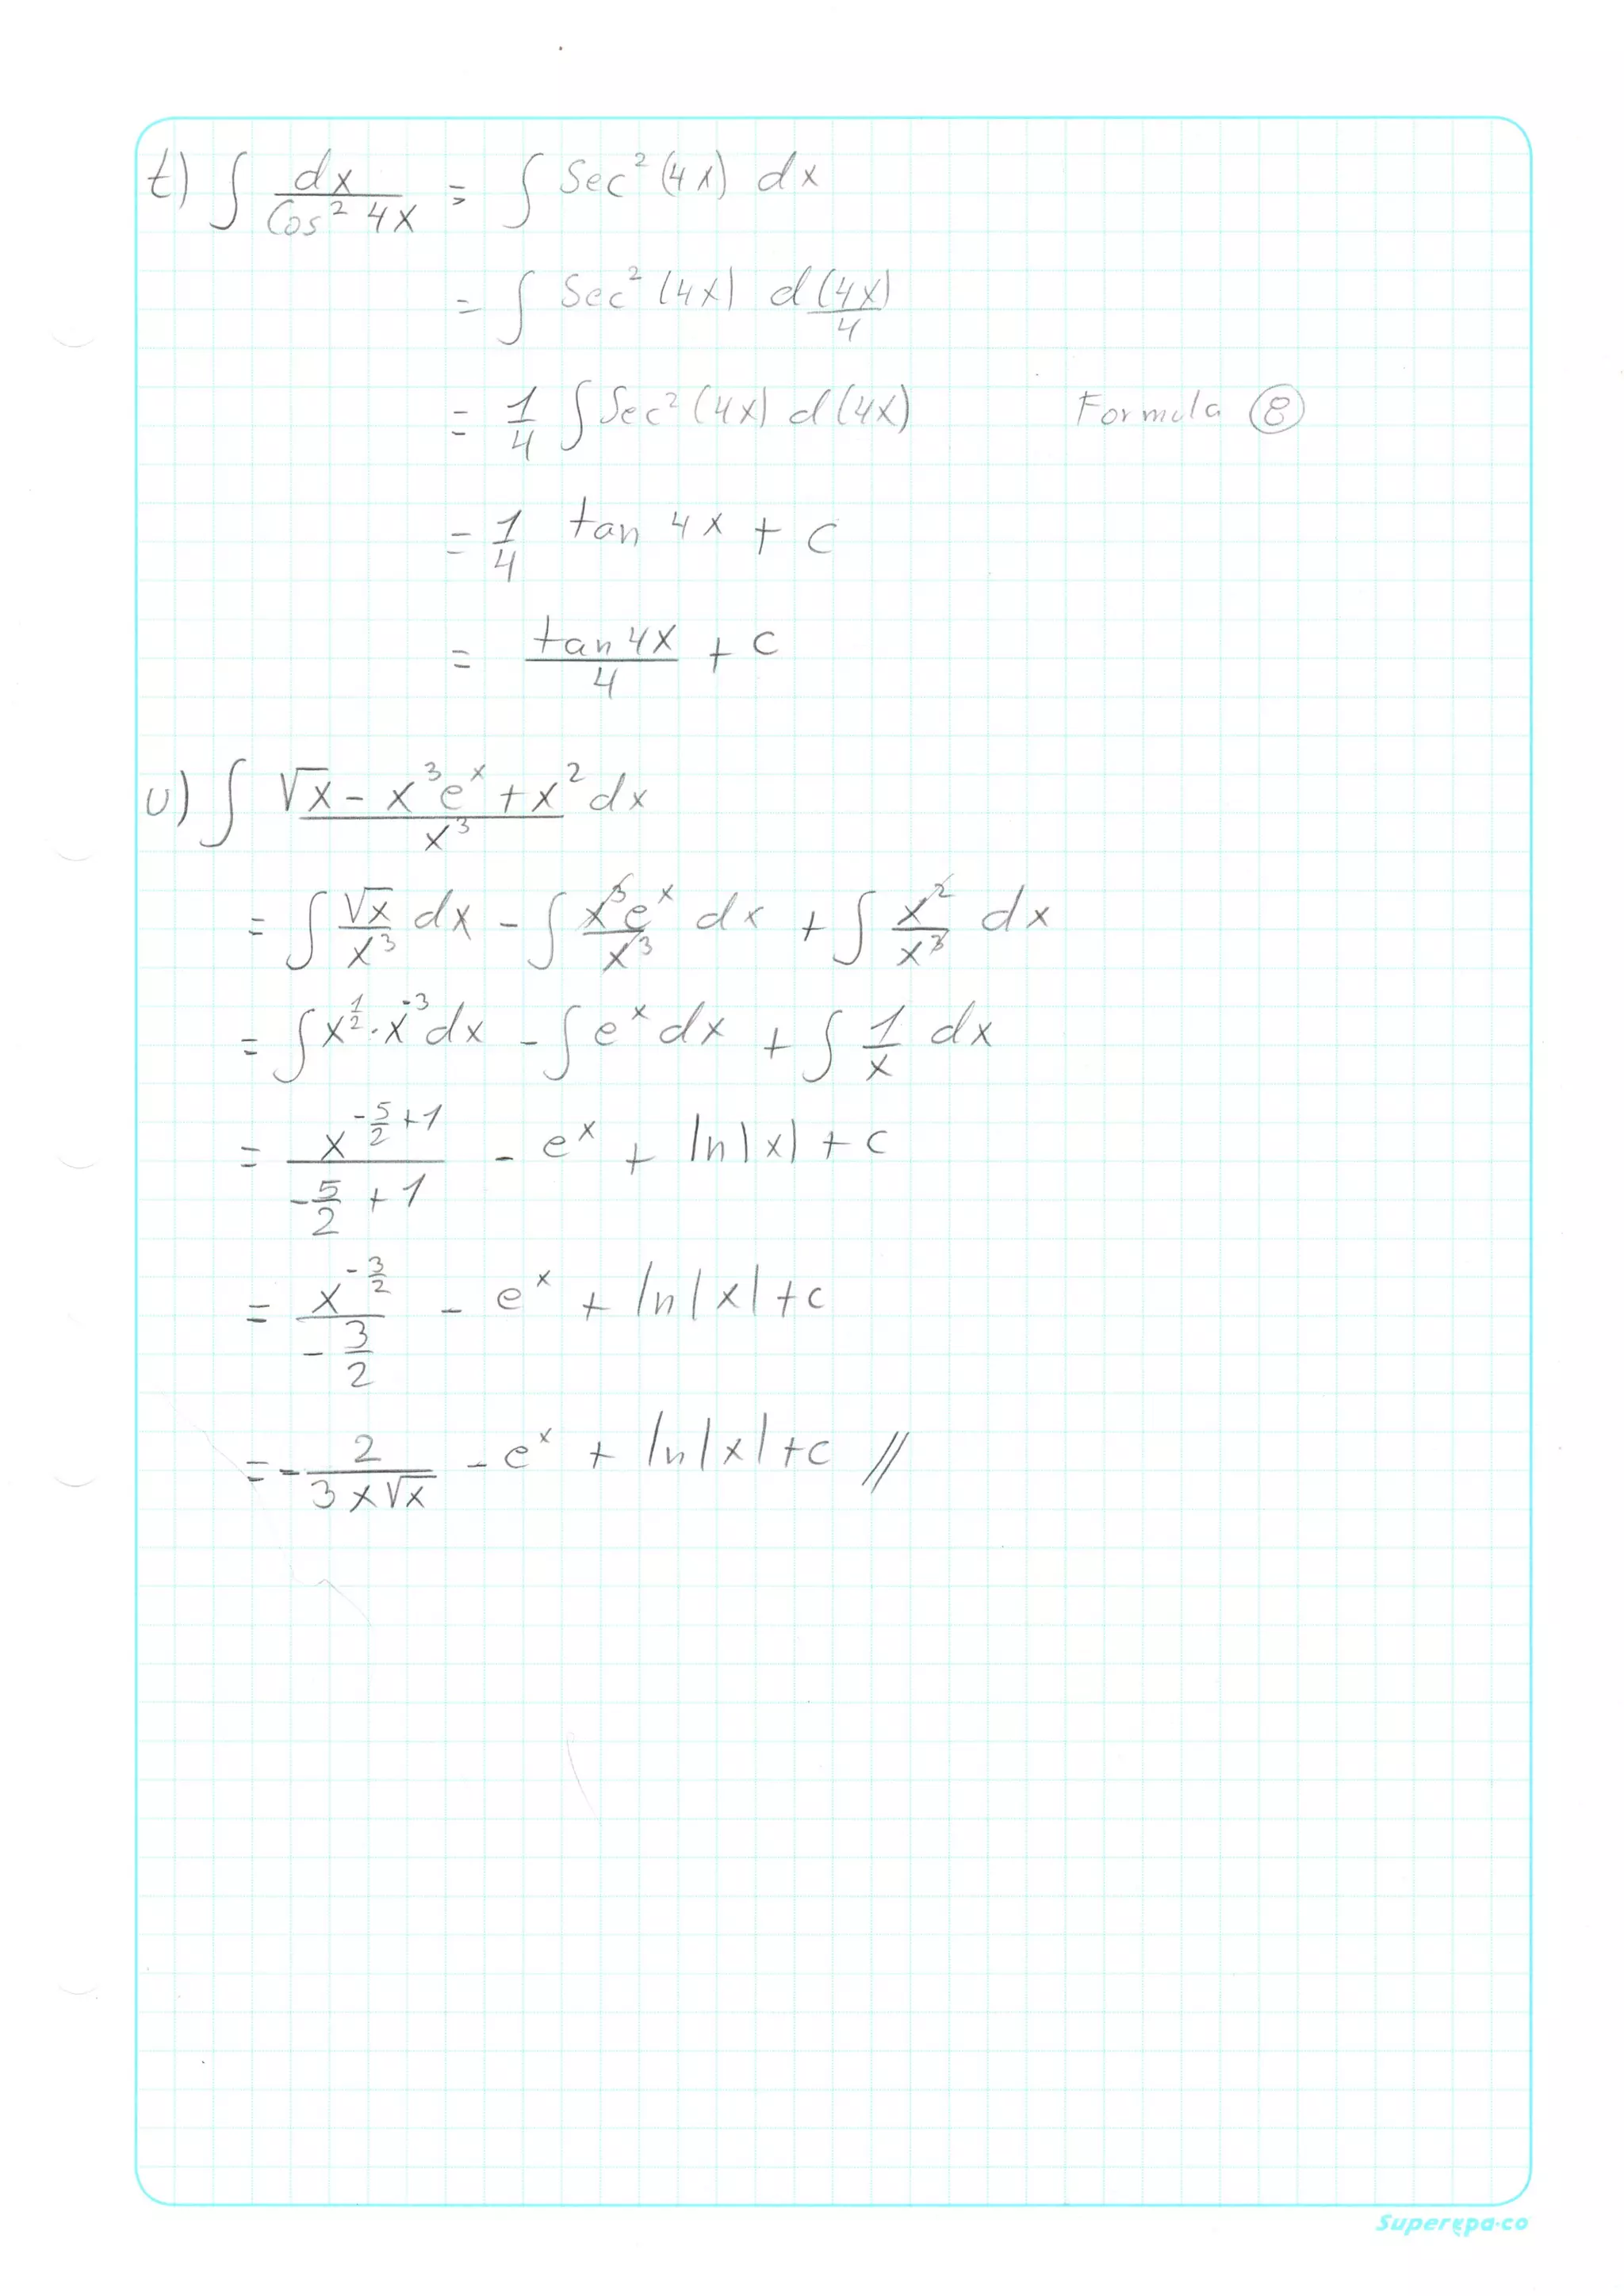 t) ∫ dx / Cos² 4x = ∫ Sec² (4x) dx
= ∫ Sec² (4x) d(4x)/4
= 1/4 ∫ Sec² (4x) d(4x) Formula ⑧
= 1/4 tan 4x + c
= tan 4x / 4 + c
u) ∫ √x - x³eˣ + x² / x³ dx
= ∫ √x / x³ dx - ∫ x³eˣ / x³ dx + ∫ x² / x³ dx
= ∫ x^(1/2) · x⁻³ dx - ∫ eˣ dx + ∫ 1/x dx
= x^(-5/2 + 1) / (-5/2 + 1) - eˣ + ln|x| + c
= x^(-3/2) / (-3/2) - eˣ + ln|x| + c
= - 2 / 3x√x - eˣ + ln|x| + c //